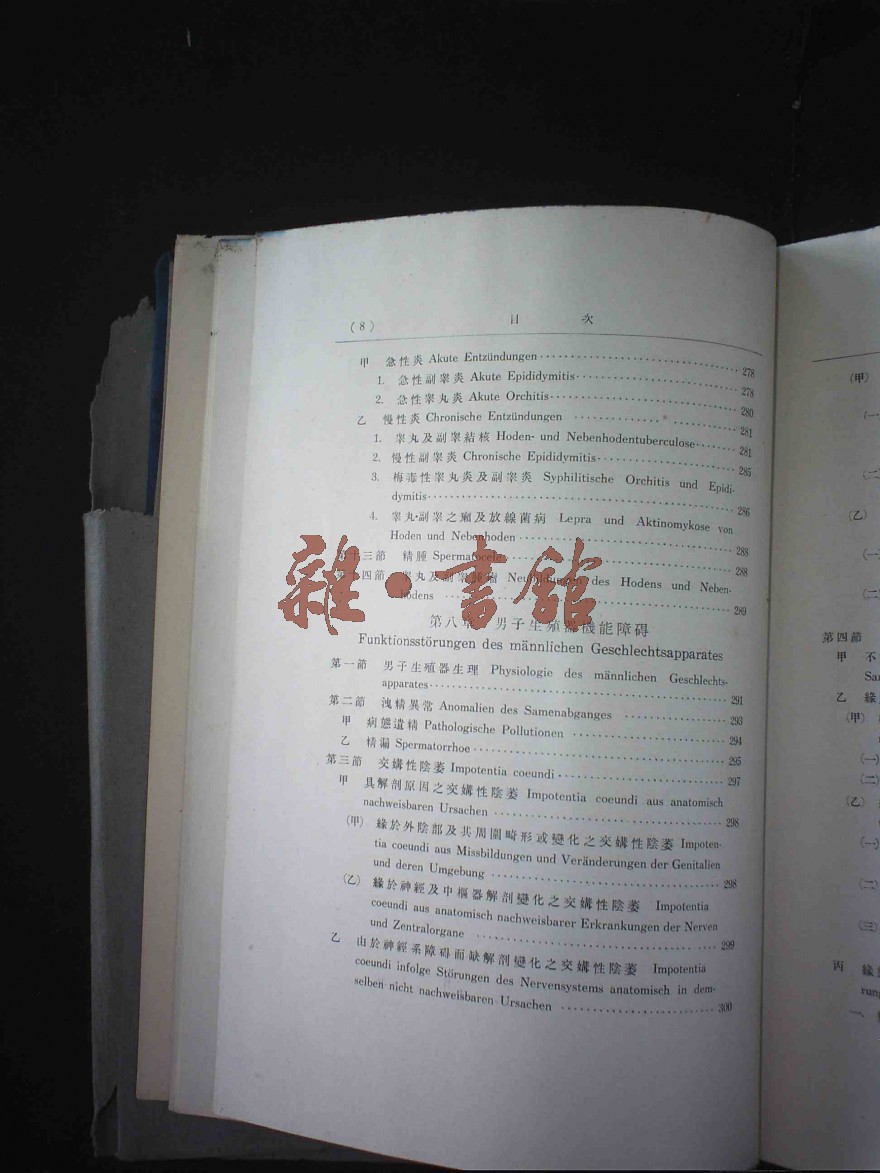 (8) 目 次
甲 急性炎 Akute Entzündungen 278
1. 急性副睾炎 Akute Epididymitis 278
2. 急性睾丸炎 Akute Orchitis 280
乙 慢性炎 Chronische Entzündungen 281
1. 睾丸及副睾結核 Hoden- und Nebenhodentuberculose 281
2. 慢性副睾炎 Chronische Epididymitis 285
3. 梅毒性睾丸炎及副睾炎 Syphilitische Orchitis und Epidi-
dymitis 286
4. 睾丸·副睾之癩及放線菌病 Lepra und Aktinomykose von
Hoden und Nebenhoden 288
第十三節 精腫 Spermatocele 288
第十四節 睾丸及副睾腫瘤 Neubildungen des Hodens und Neben-
hodens 289
雜·書館
第八章 男子生殖器機能障碍
Funktionsstörungen des männlichen Geschlechtsapparates
第一節 男子生殖器生理 Physiologie des männlichen Geschlechts-
apparates 291
第二節 洩精異常 Anomalien des Samenabganges 293
甲 病態遺精 Pathologische Pollutionen 294
乙 精漏 Spermatorrhoe 295
第三節 交媾性陰萎 Impotentia coeundi 297
甲 具解剖原因之交媾性陰萎 Impotentia coeundi aus anatomisch
nachweisbaren Ursachen 298
(甲) 緣於外陰部及其周圍畸形或變化之交媾性陰萎 Impoten-
tia coeundi aus Missbildungen und Veränderungen der Genitalien
und deren Umgebung 298
(乙) 緣於神經及中樞器解剖變化之交媾性陰萎 Impotentia
coeundi aus anatomisch nachweisbarer Erkrankungen der Nerven
und Zentralorgane 299
乙 由於神經系障碍而缺解剖變化之交媾性陰萎 Impotentia
coeundi infolge Störungen des Nervensystems anatomisch in dem-
selben nicht nachweisbaren Ursachen 300
(甲)
(一)
(二)
(乙)
(一)
(二)
第四節
甲 不
Sa
乙 緣
(甲)
(一)
(二)
(乙)
(一)
(二)
(三)
丙 緣
rung
一、